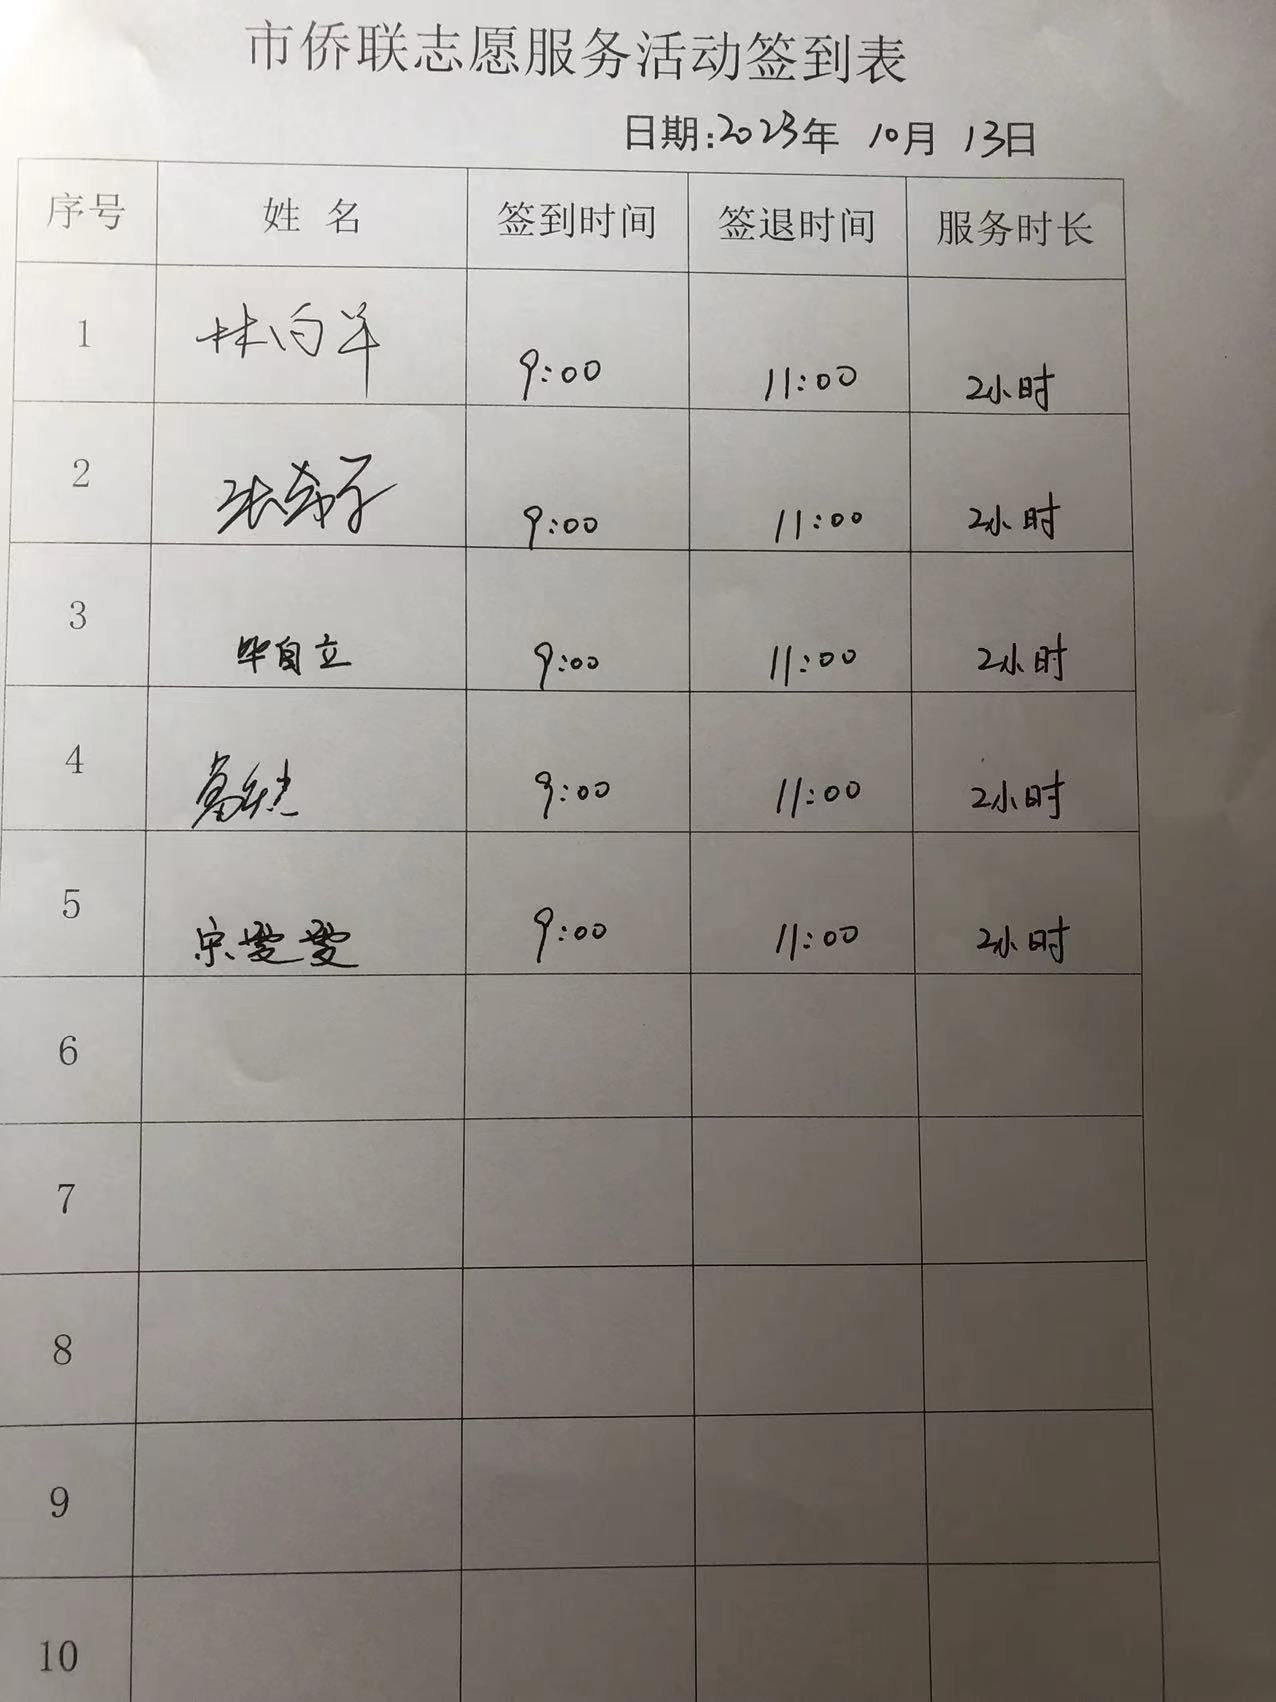 市侨联志愿服务活动签到表
日期:2023年 10月 13日
序号 姓名 签到时间 签退时间 服务时长
1 林向羊 9:00 11:00 2小时
2 9:00 11:00 2小时
3 毕自立 9:00 11:00 2小时
4 9:00 11:00 2小时
5 宋雯雯 9:00 11:00 2小时
6
7
8
9
10